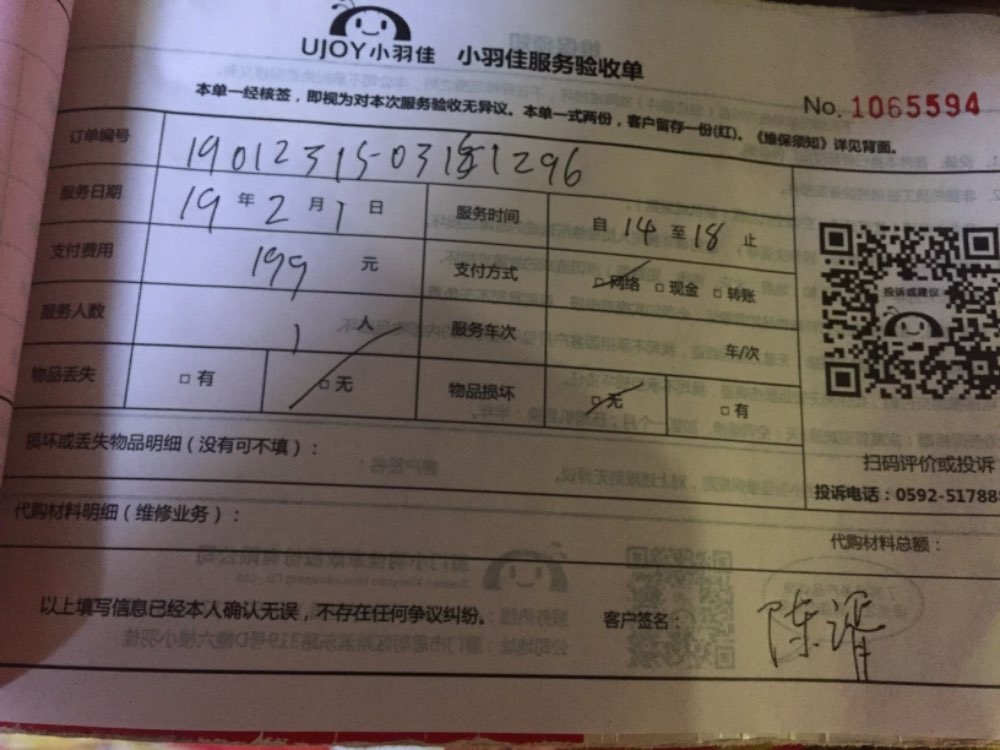 UJOY小羽佳 小羽佳服务验收单
No. 1065594
本单一经核签，即视为对本次服务验收无异议。本单一式两份，客户留存一份(红)。《维保须知》详见背面。
订单编号 19012315-031 1296
服务日期 19 年 2 月 1 日 服务时间 自 14 至 18 止
支付费用 199 元 支付方式 □网络 □现金 □转账
服务人数 1 人 服务车次 车/次
物品丢失 □有 □无 物品损坏 □无 □有
投诉或建议
损坏或丢失物品明细（没有可不填）：
扫码评价或投诉
投诉电话：0592-51788
代购材料明细（维修业务）：
代购材料总额：
以上填写信息已经本人确认无误，不存在任何争议纠纷。 客户签名： 陈